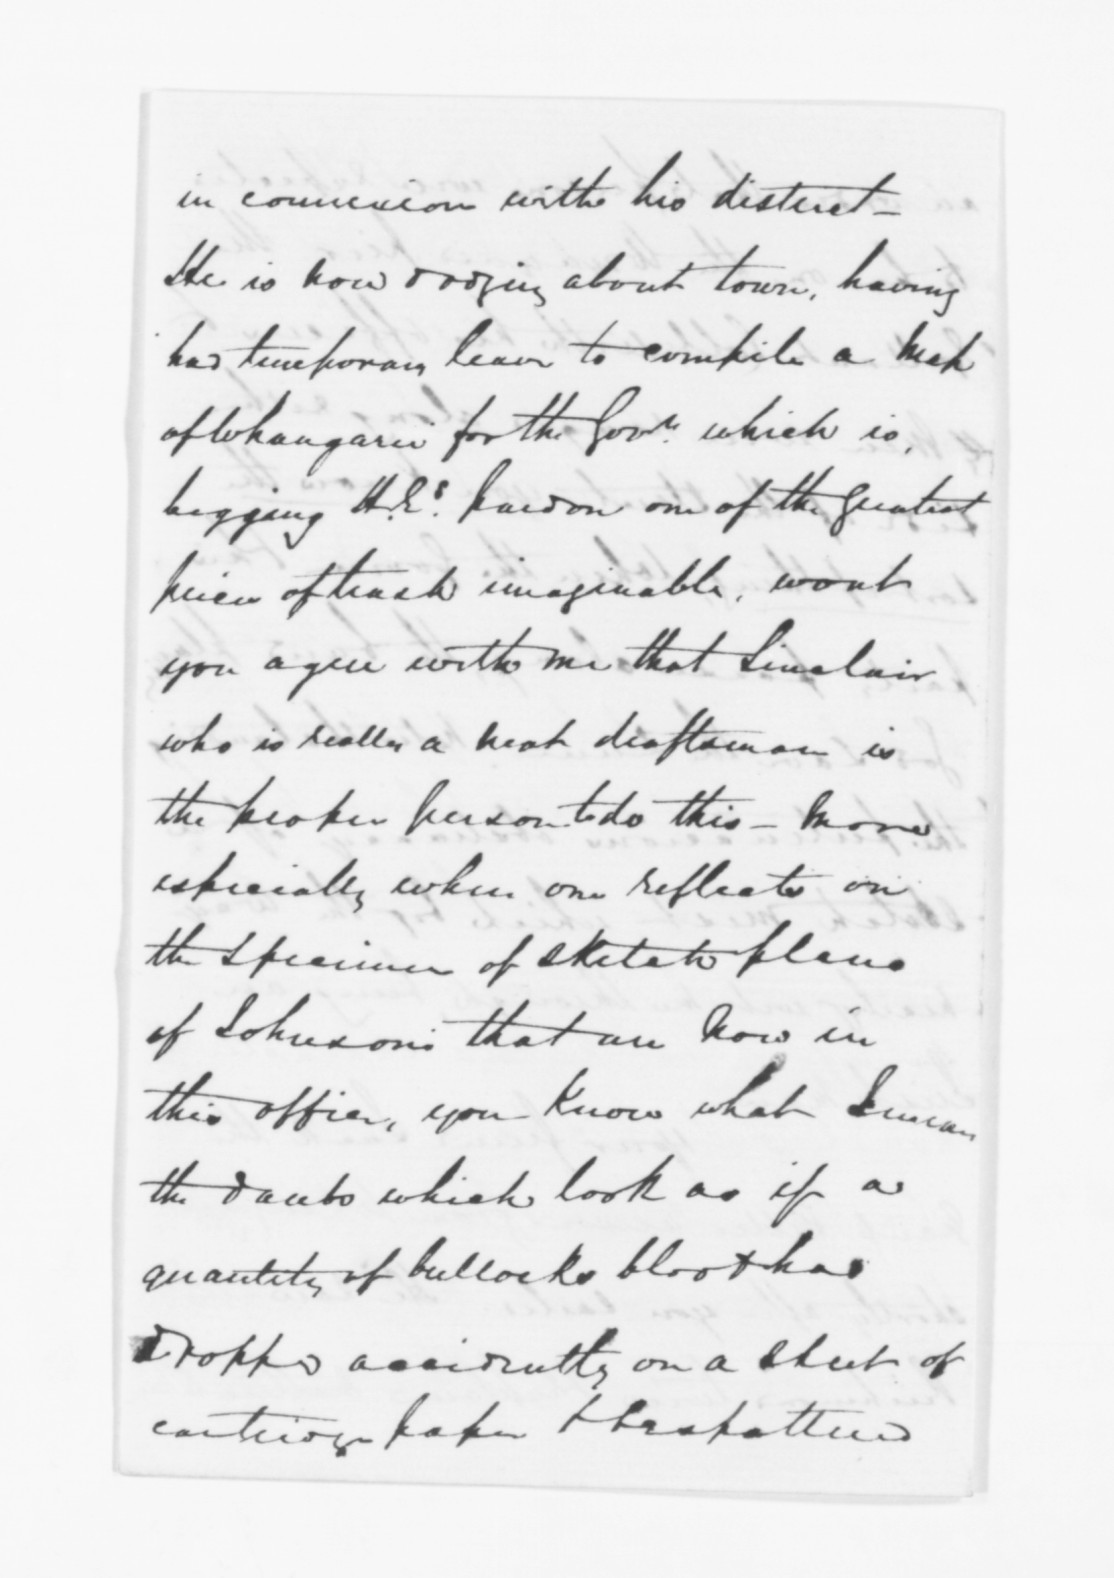 in connexion with his district –
He is now dodging about town, having
had temporary leave to compile a Map
of Whangarei for the Govr. which is,
begging H.E's. pardon one of the greatest
pieces of trash imaginable, wont
you agree with me that Sinclair
who is really a neat draftsman is
the proper person to do this – More
especially when one reflects on
the specimen of sketch plans
of Johnson's that are now in
this office, you know what I mean
the daubs which look as if a
quantity of bullocks blood had
dropped accidently on a sheet of
cartridge paper & bespattered